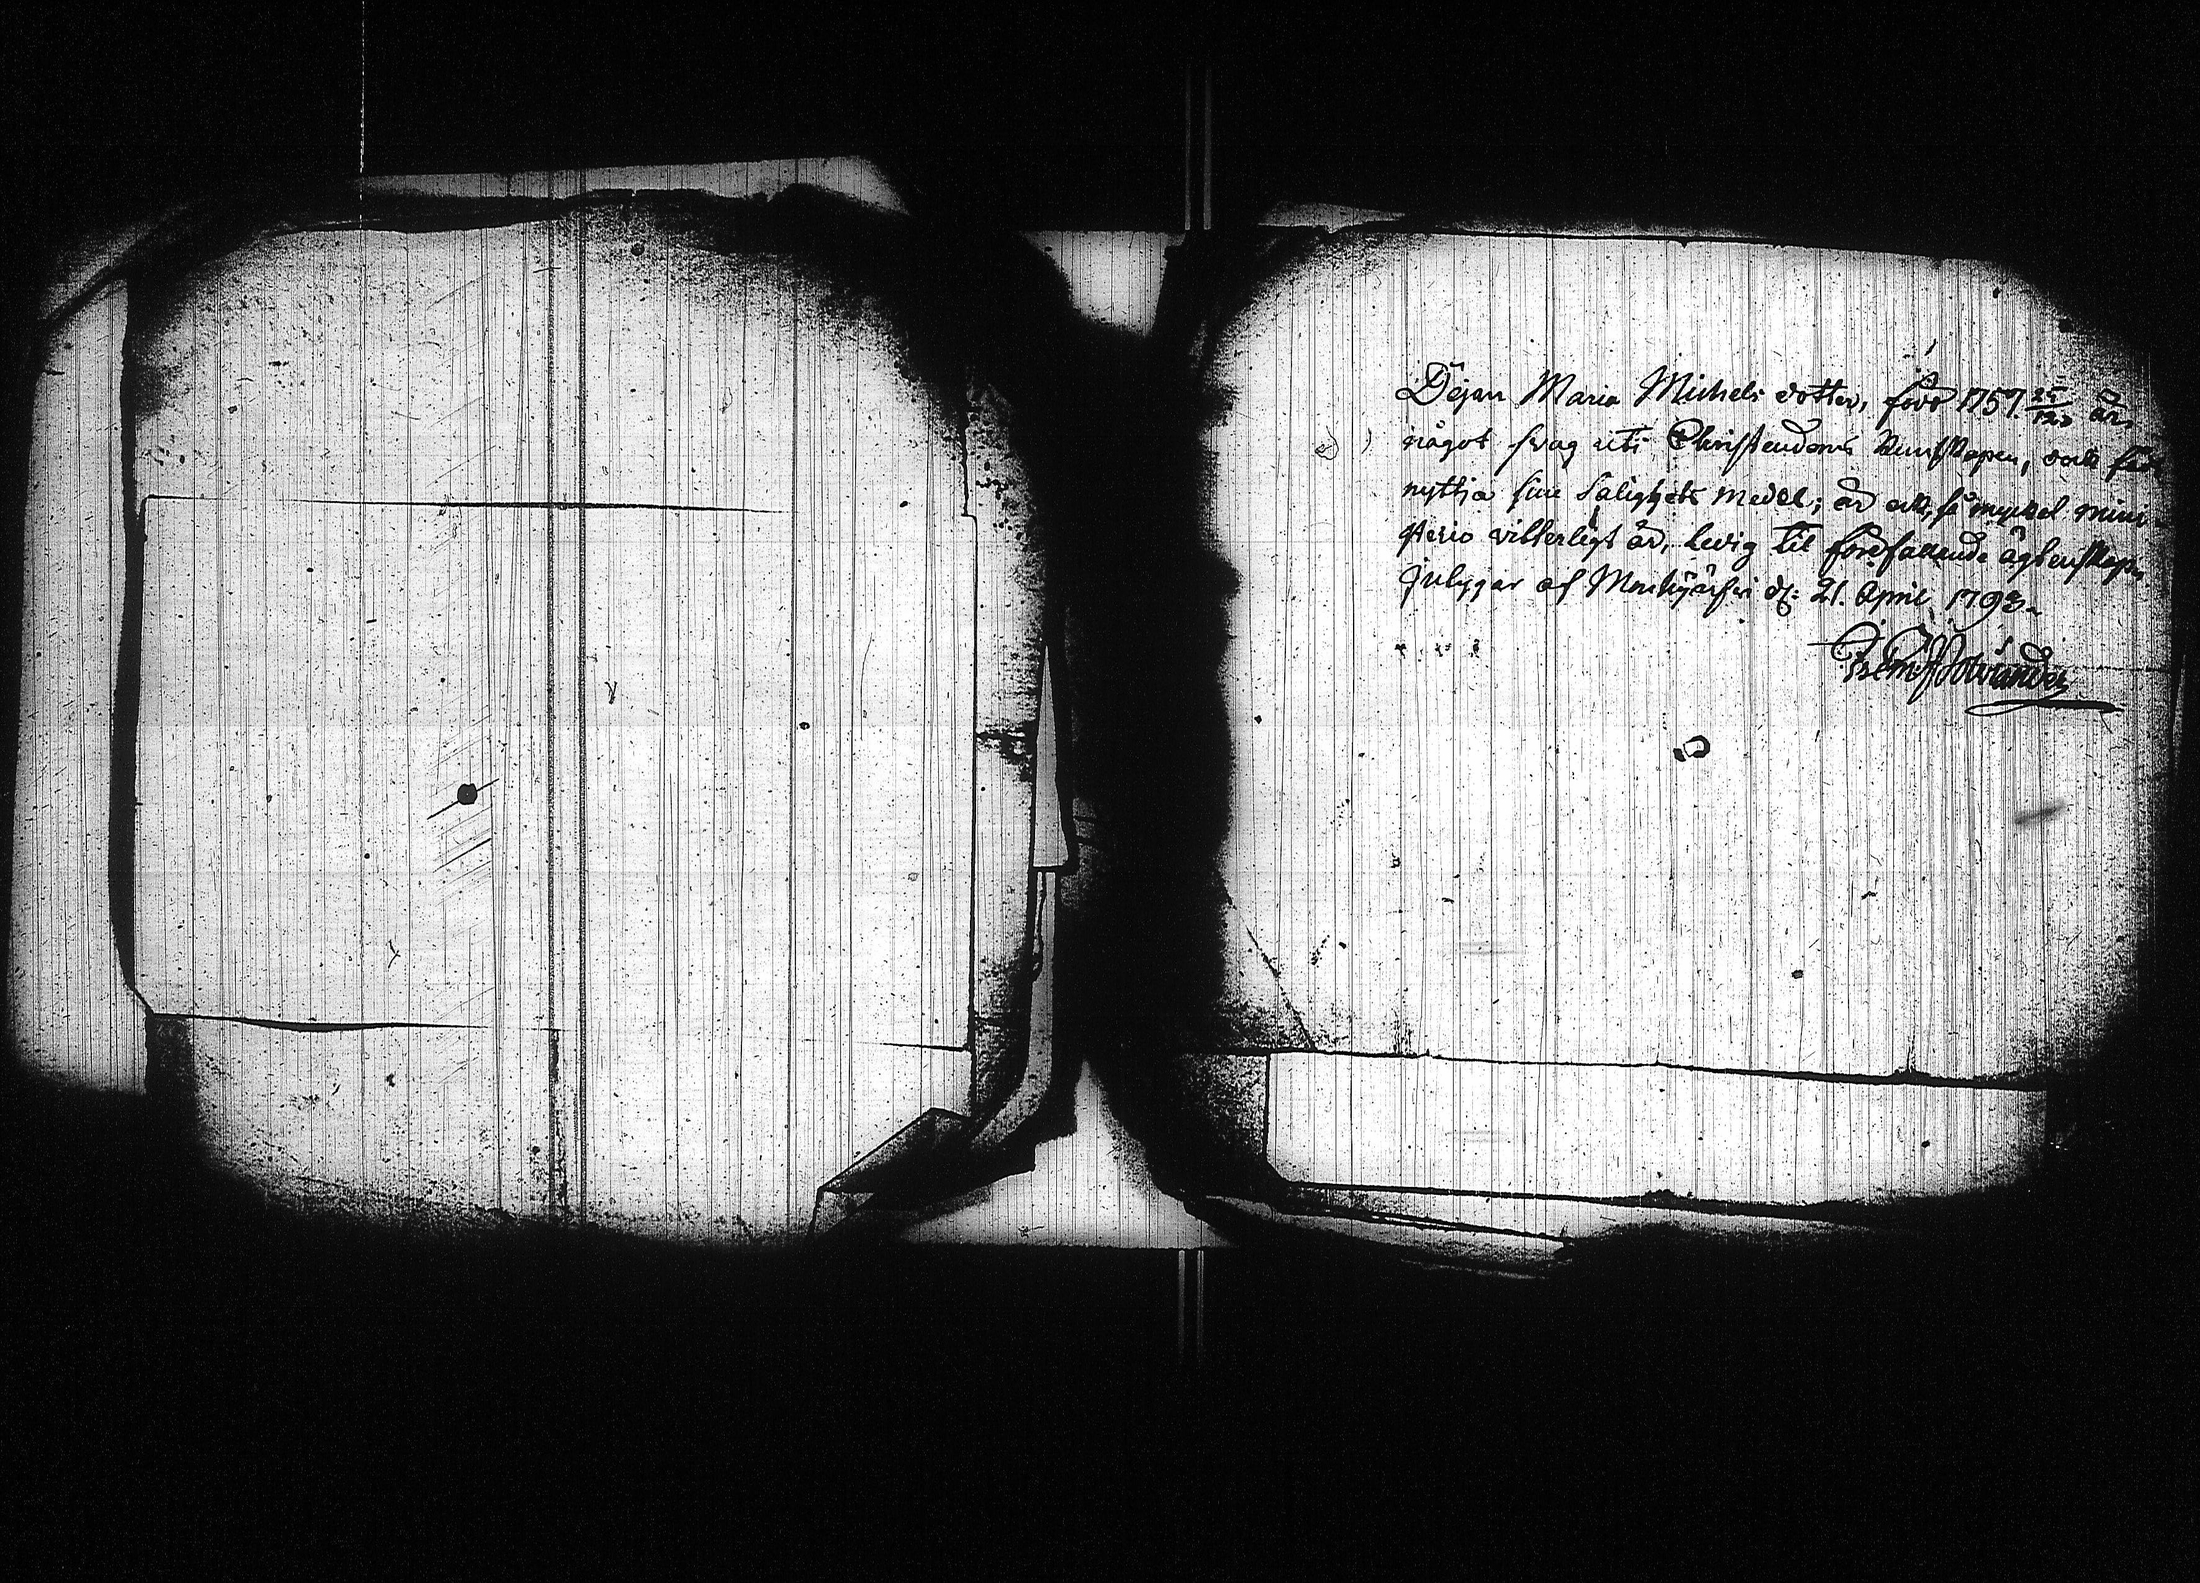 Dejan Maria Michels dotter, född 1757 25/12 är
något svag uti Christendoms kunskapen, dock får
nyttja sine Salighets medel; är ock, så mycket mini-
sterio vitterligt är, ledig til förefallande ägtenskap.
Intygar af Monkijärfvi d: 21. April 1793.